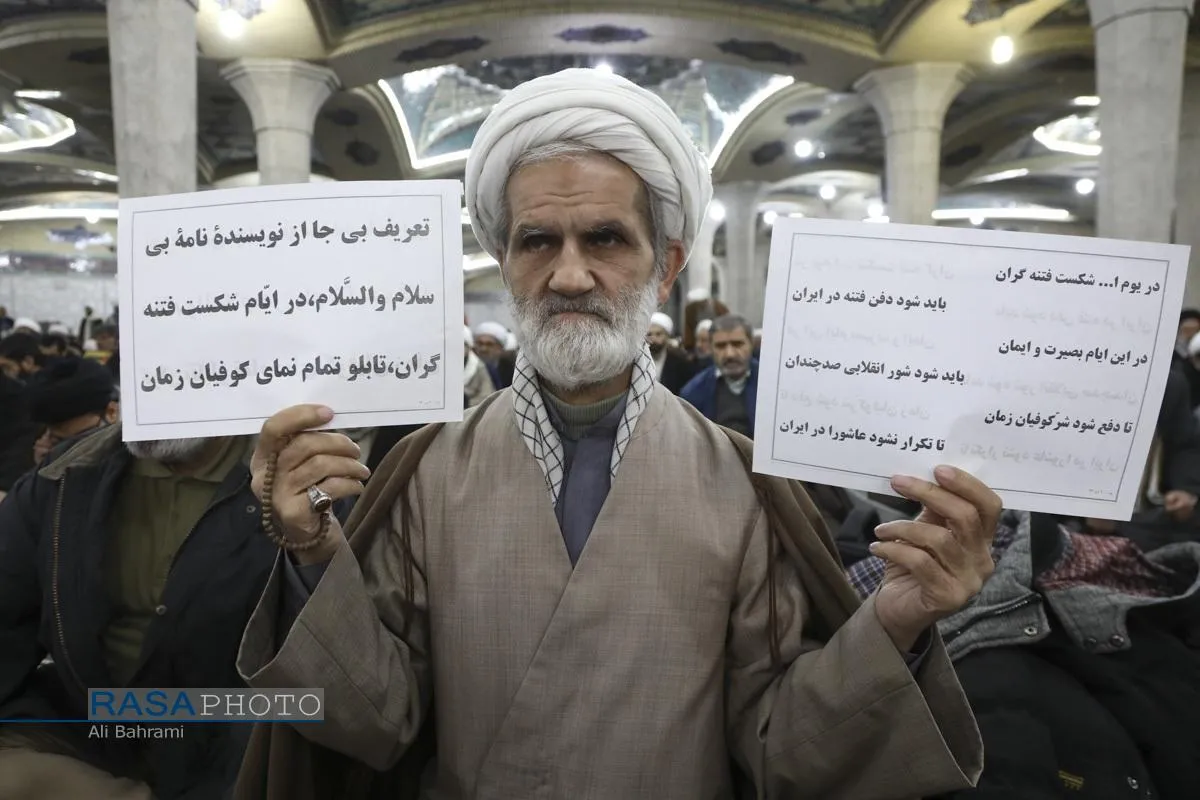 تعریف بی جا از نویسندۀ نامۀ بی
سلام والسَّلام،در ایّام شکست فتنه
گران،تابلو تمام نمای کوفیان زمان
در یوم ا... شکست فتنه گران
باید شود دفن فتنه در ایران
در این ایام بصیرت و ایمان
باید شود شور انقلابی صدچندان
تا دفع شود شرّکوفیان زمان
تا تکرار نشود عاشورا در ایران
RASAPHOTO
Ali Bahrami